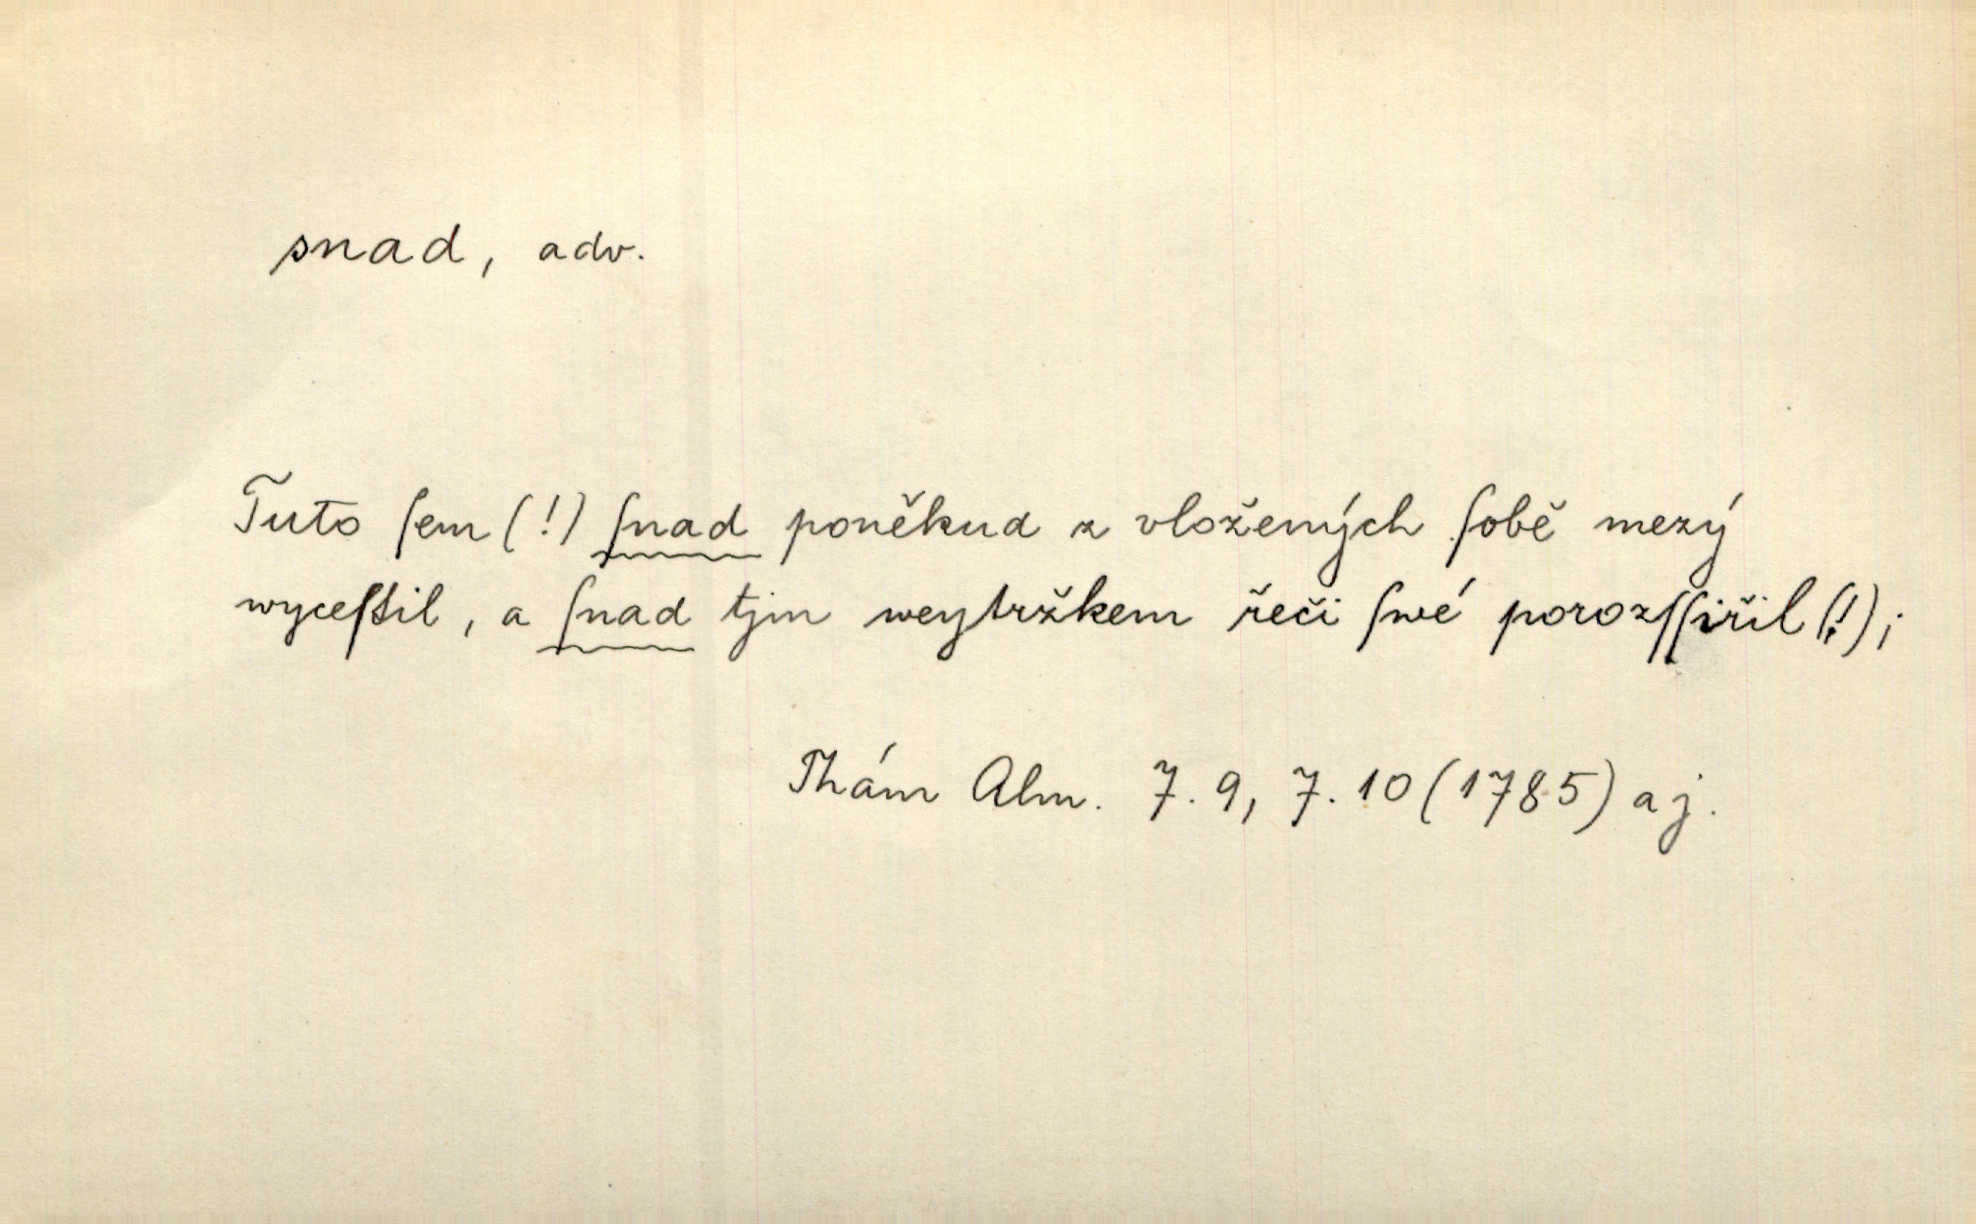 snad, adv.
Tuto ſem (!) ſnad poněkud z vložených ſobě mezý
wyceſtil, a ſnad tjm weytržkem řeči ſwé porozſſiřil (!);
Thám Alm. 7. 9, 7. 10 (1785) aj.